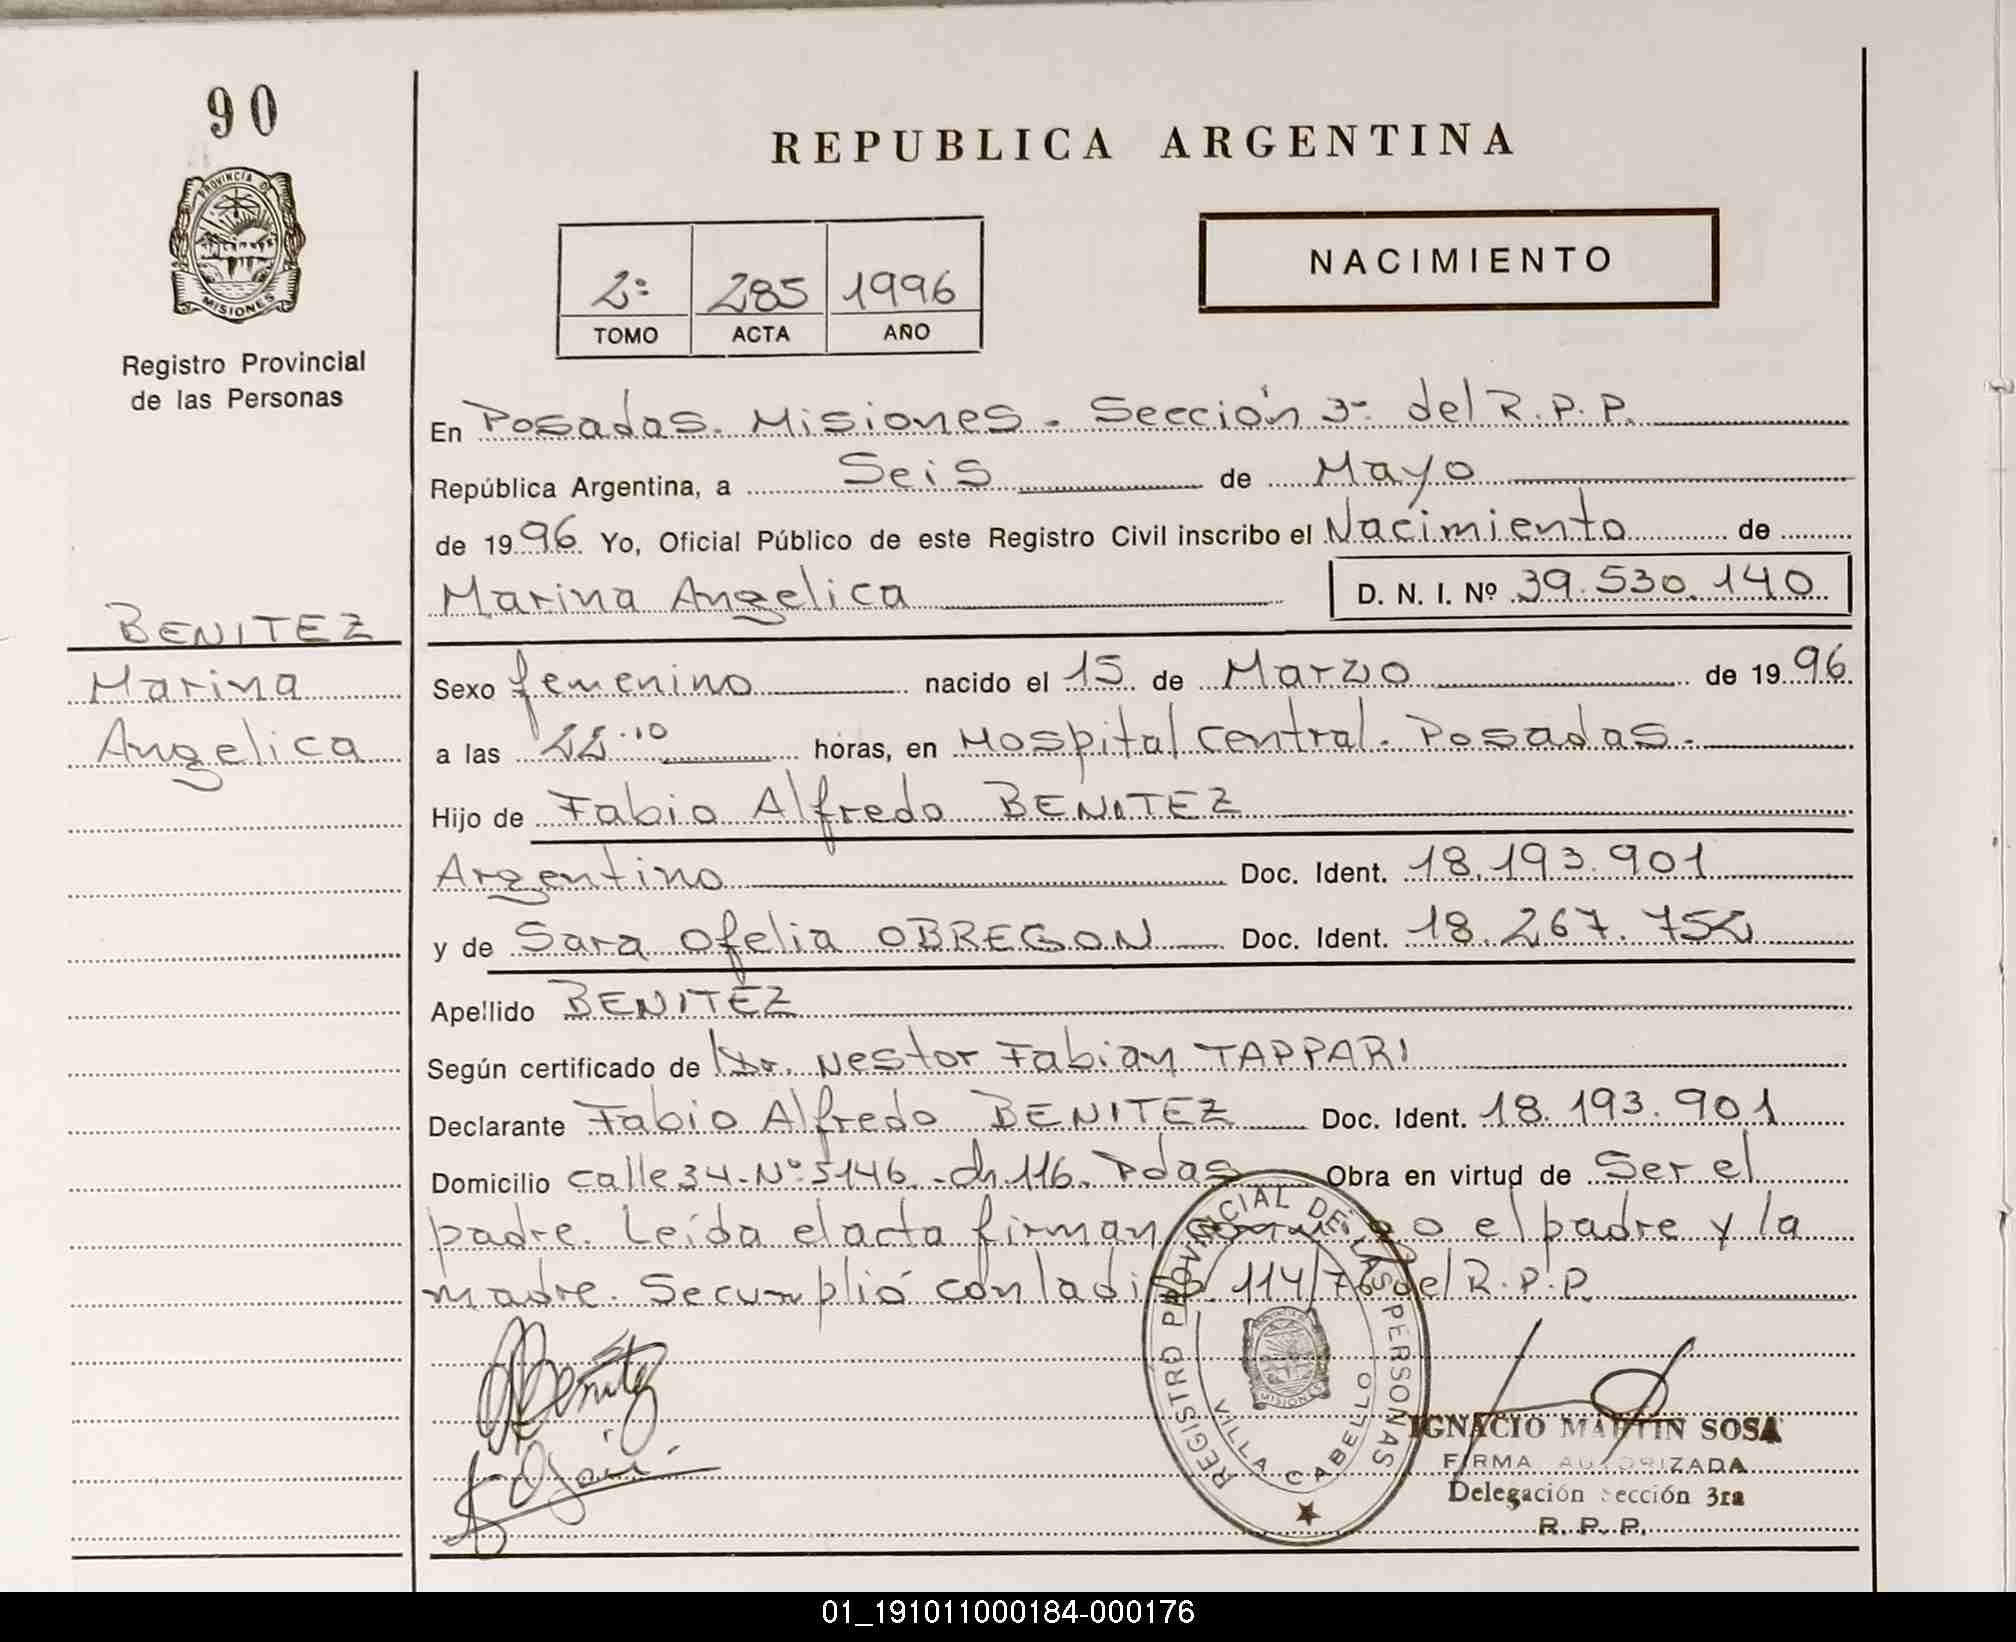 90
PROVINCIA DE
MISIONES
Registro Provincial
de las Personas
BENITEZ
Marina
Angelica
REPUBLICA ARGENTINA
NACIMIENTO
2º 285 1996
TOMO ACTA AÑO
En Posadas. Misiones. Sección 3º del R.P.P.
República Argentina, a Seis de Mayo
de 1996 Yo, Oficial Público de este Registro Civil inscribo el Nacimiento de
Marina Angelica D. N. I. Nº 39.530.140
Sexo femenino nacido el 15 de Marzo de 1996
a las 22.10 horas, en Hospital Central. Posadas.
Hijo de Fabio Alfredo BENITEZ
Argentino Doc. Ident. 18.193.901
y de Sara Ofelia OBREGON Doc. Ident. 18.267.752
Apellido BENITEZ
Según certificado de Dr. Nestor Fabian TAPPARI
Declarante Fabio Alfredo BENITEZ Doc. Ident. 18.193.901
Domicilio calle 34. Nº 5146. ch 116. Pdas Obra en virtud de Ser el
padre. Leída el acta firman conmigo el padre y la
madre. Se cumplió con la disp. 114/76 del R.P.P.
REGISTRO PROVINCIAL DE LAS PERSONAS
MISIONES
VILLA CABELLO
IGNACIO MARTIN SOSA
FIRMA AUTORIZADA
Delegación Sección 3ra
R. P. P.
01_191011000184-000176